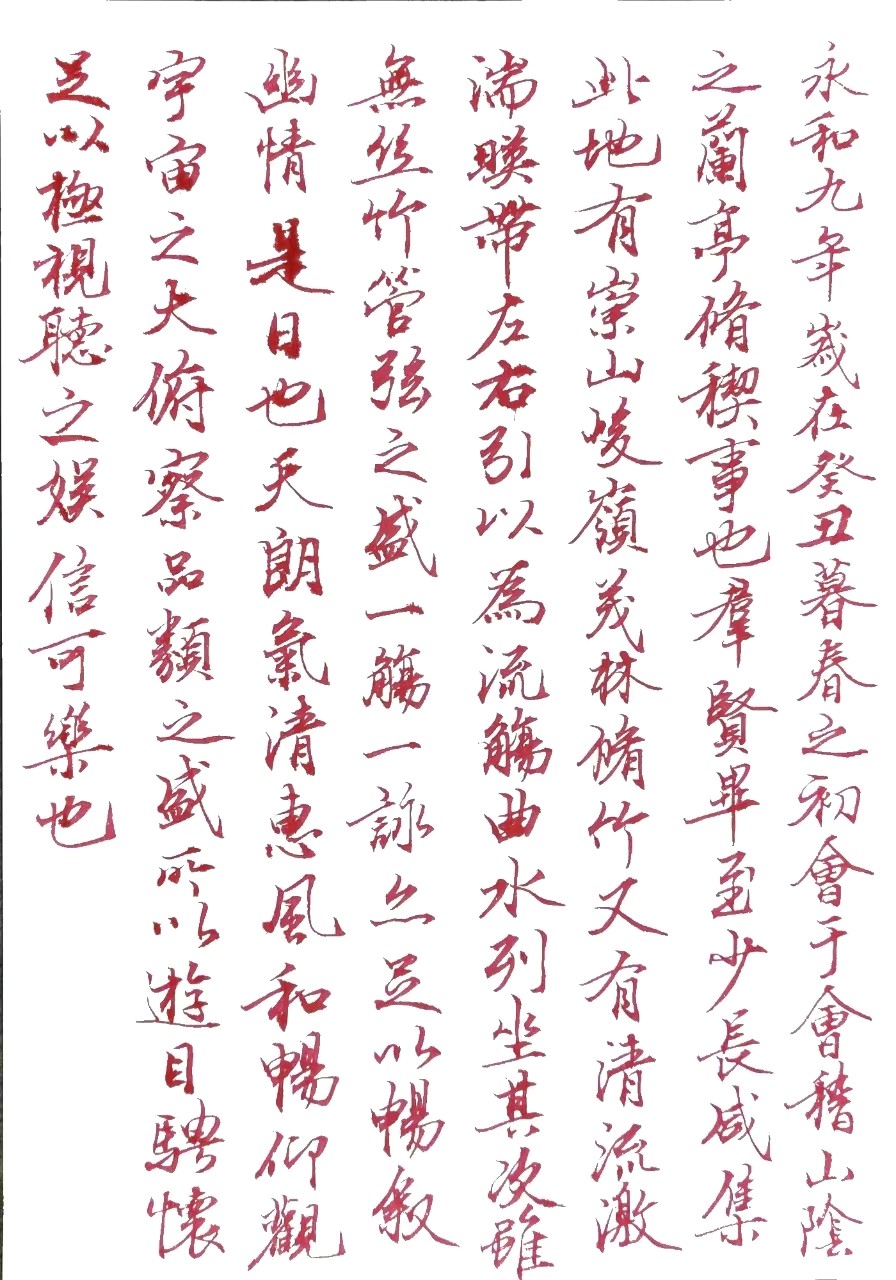 永和九年歲在癸丑暮春之初會于會稽山陰
之蘭亭脩稧事也羣賢畢至少長咸集
此地有崇山峻嶺茂林脩竹又有清流激
湍暎帶左右引以為流觴曲水列坐其次雖
無丝竹管弦之盛一觴一詠亦足以暢敘
幽情是日也天朗氣清惠風和暢仰觀
宇宙之大俯察品類之盛所以遊目騁懷
足以極視聽之娛信可樂也